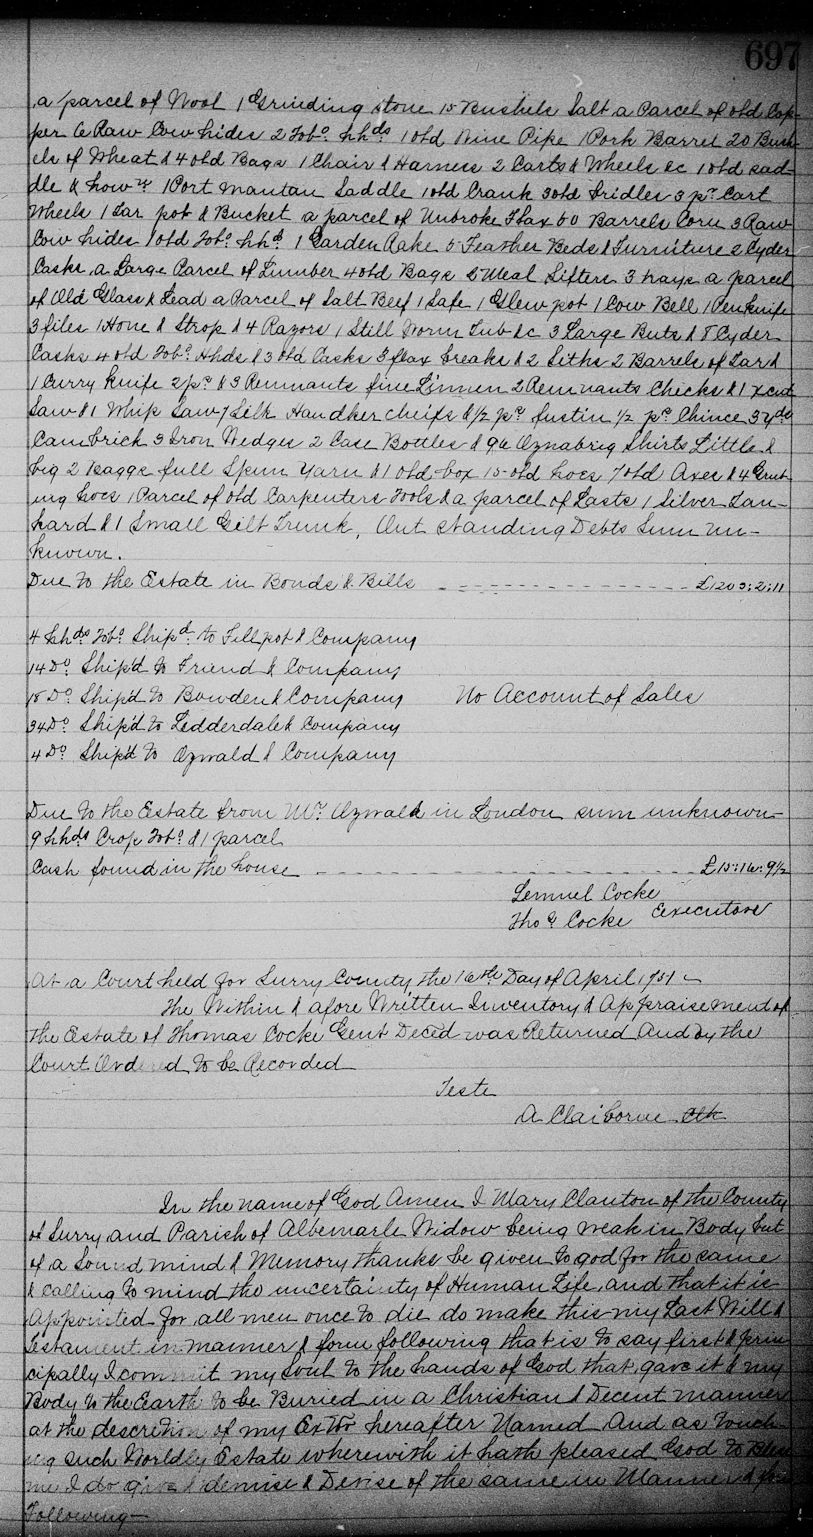 697
a parcel of Wool 1 Grinding stone 15 Bushels Salt a Parcel of old Cop-
per 6 Raw Cow hides 2 Tobo. hhds 1 old Wine Pipe 1 Pork Barrel 20 Bush
els of Wheat & 4 old Bags 1 Chair & Harness 2 Carts & Wheels &c 1 old sad-
dle & how 1 Port mantau Saddle 1 old Crank 3 old bridles 3 pr. Cart
Wheels 1 Tar pot & Bucket a parcel of Unbroke Flax 60 Barrels Corn 3 Raw
Cow hides 1 old Tobo. hhd. 1 Garden Rake 5 Feather Beds & Furniture 2 Cyder
Casks a Large Parcel of Lumber 4 old Bags 5 Meal Sifters 3 trays a parcel
of Old Glass & Lead a Parcel of Salt Beef 1 Safe 1 Glew pot 1 Cow Bell 1 Penknife
3 files 1 Hone & Strop & 4 Razors 1 Still Worm Tub &c 3 Large Buts & 8 Cyder
Casks 4 old Tobo. Hhds & 3 old Casks 3 flax breaks & 2 Siths 2 Barrels of Tar &
1 Curry knife 2 ps. & 3 Remnants fine Linnen 2 Remnants Checks & 1 Xcut
Saw & 1 Whip Saw 7 Silk Handkercheifs & 1/2 ps. fustin 1/2 ps. Chince 3 yds
Cambrick 3 Iron Wedges 2 Case Bottles & 96 Oznabrig Shirts Little &
big 2 baggs full Spun Yarn & 1 old box 15 old hoes 7 old Axes & 4 Grub-
ing hoes 1 Parcel of old Carpenters Tools & a parcel of Lasts 1 Silver Tan-
kard & 1 Small Gilt Trunk, Out standing Debts Sum un-
known.
Due to the Estate in Bonds & Bills £1203:2:11
4 hhds Tobo. Shipd. to Tillpot & Company
14 Do. Ship'd to Friend & Company
18 Do. Ship'd to Bowden & Company No Account of Sales
34 Do. Ship'd to Lidderdale & Company
4 Do. Ship'd to Ozwald & Company
Due to the Estate from Mr. Ozwald in London sum unknown
9 hhds Crop Tobo. & 1 parcel
Cash found in the house £15:16:9 1/2
Lemuel Cocke
Thos. Cocke Executors
At a Court held for Surry County the 16th Day of April 1751
The Within & afore Written Inventory & Appraisement of
the Estate of Thomas Cocke Gent Deced was Returned And by the
Court Ordered to be Recorded
Teste
A Claiborne Clk
In the name of God Amen I Mary Clanton of the County
of Surry and Parish of Albemarle Widow being weak in Body but
of a Sound mind & Memory thanks be given to god for the same
& calling to mind the uncertainty of Human Life, and that it is
Appointed for all men once to die do make this my Last Will &
Testament in manner & form following that is to say first & prin
cipally I commit my Soul to the hands of God that gave it & my
Body to the Earth to be Buried in a Christian & Decent manner
at the descretion of my Extor hereafter Named And as touch-
ing such Worldly Estate wherewith it hath pleased God to Bless
me I do give & demise & Devise of the same in Manner & form
Following